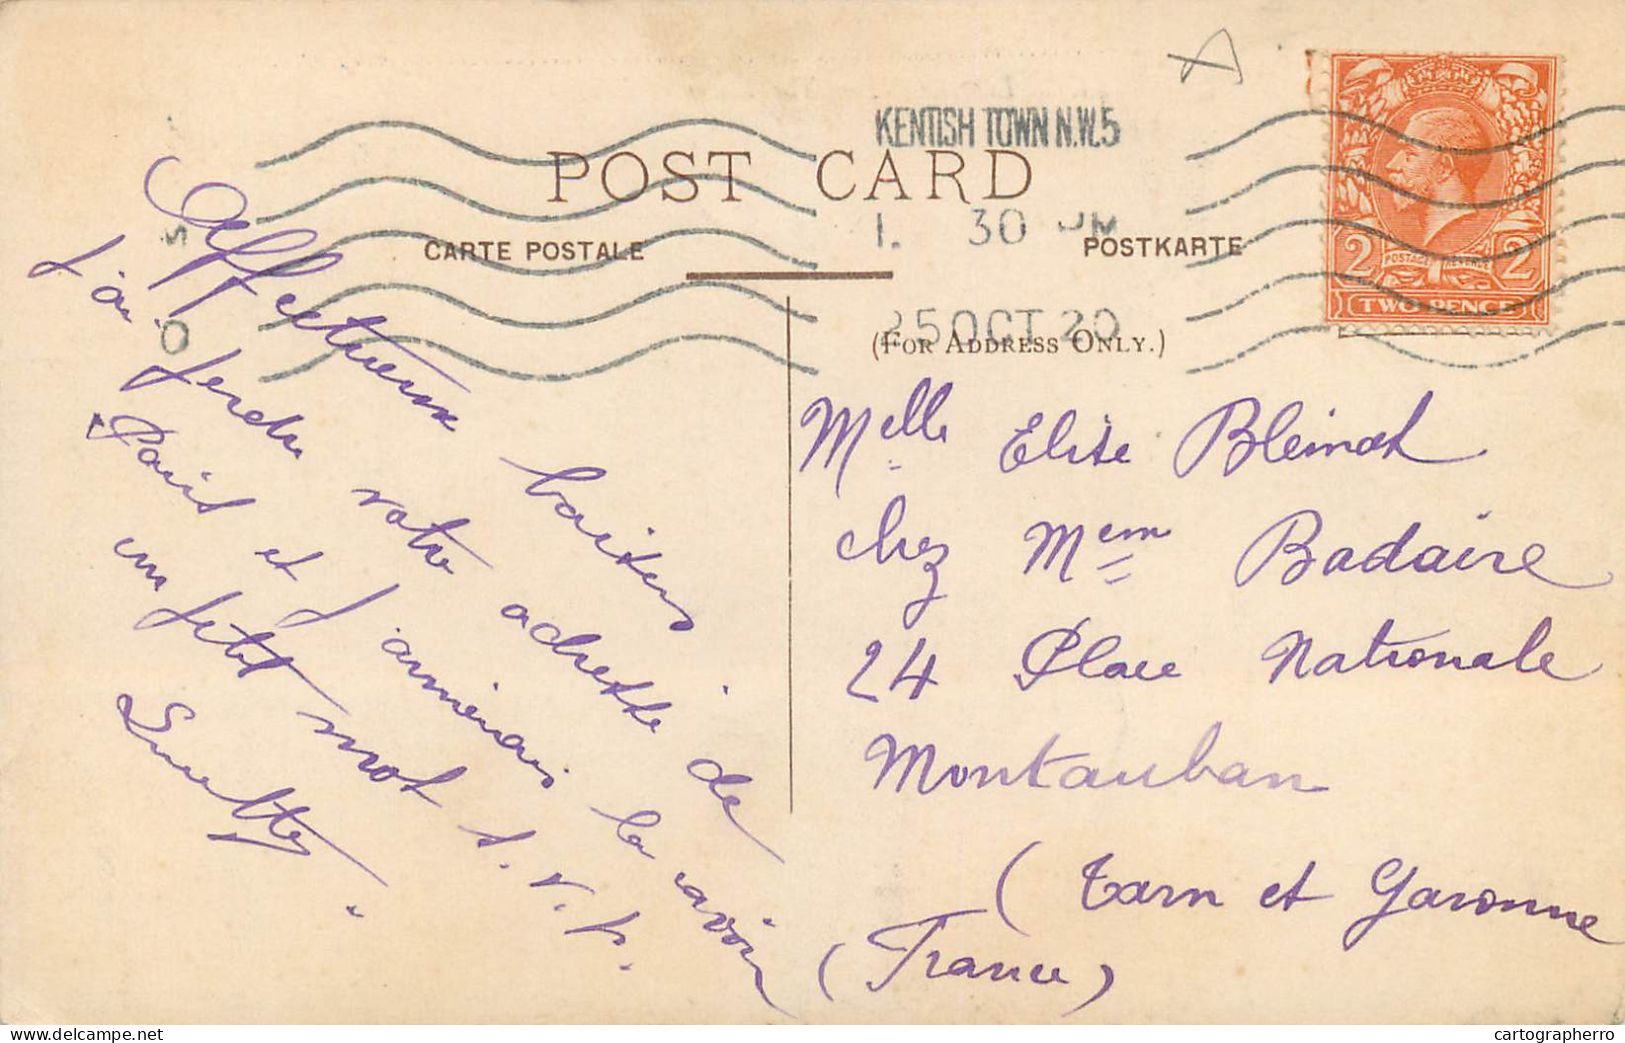 KENTISH TOWN N.W.5
POST CARD
1. 30 PM
CARTE POSTALE
POSTKARTE
25 OCT 20
(FOR ADDRESS ONLY.)
2 POSTAGE REVENUE 2
TWO PENCE
Affectueux baisers
J'ai perdu votre adresse de
Paris et j'aimerais la ravoir
un petit mot s.v.p.
Melle Elise
chez Mem Badaire
24 Place Nationale
Montauban
(Tarn et Garonne
(France)
delcampe.net
cartographerro